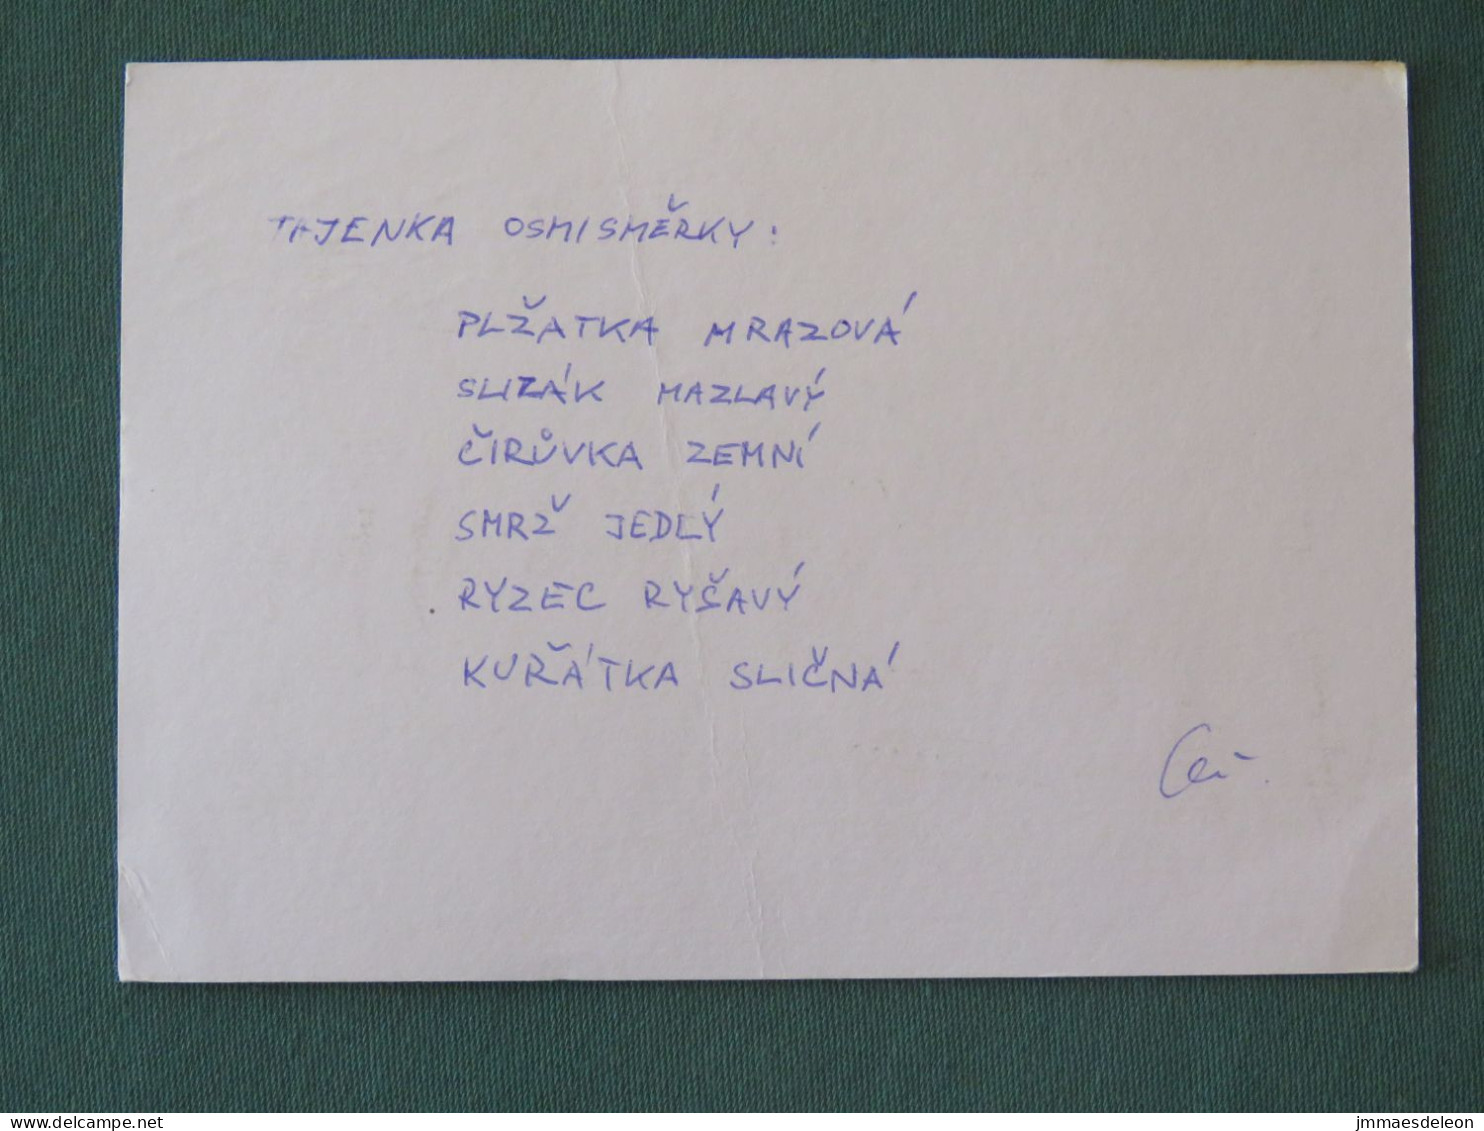 TAJENKA OSMISMĚRKY:
PLŽATKA MRAZOVÁ
SLIZÁK MAZLAVÝ
ČIRŮVKA ZEMNÍ
SMRŽ JEDLÝ
RYZEC RYŠAVÝ
KUŘÁTKA SLIČNÁ
delcampe.net
jmmaesdeleon